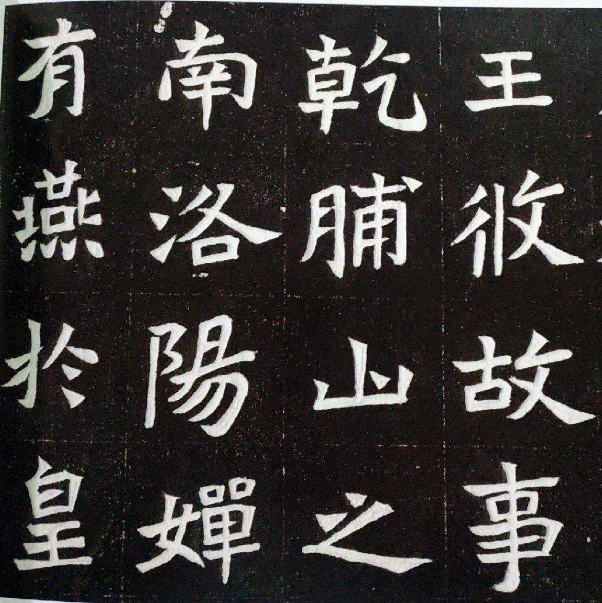 王攸故事
乾脯山之
南洛陽嬋
有燕扵皇